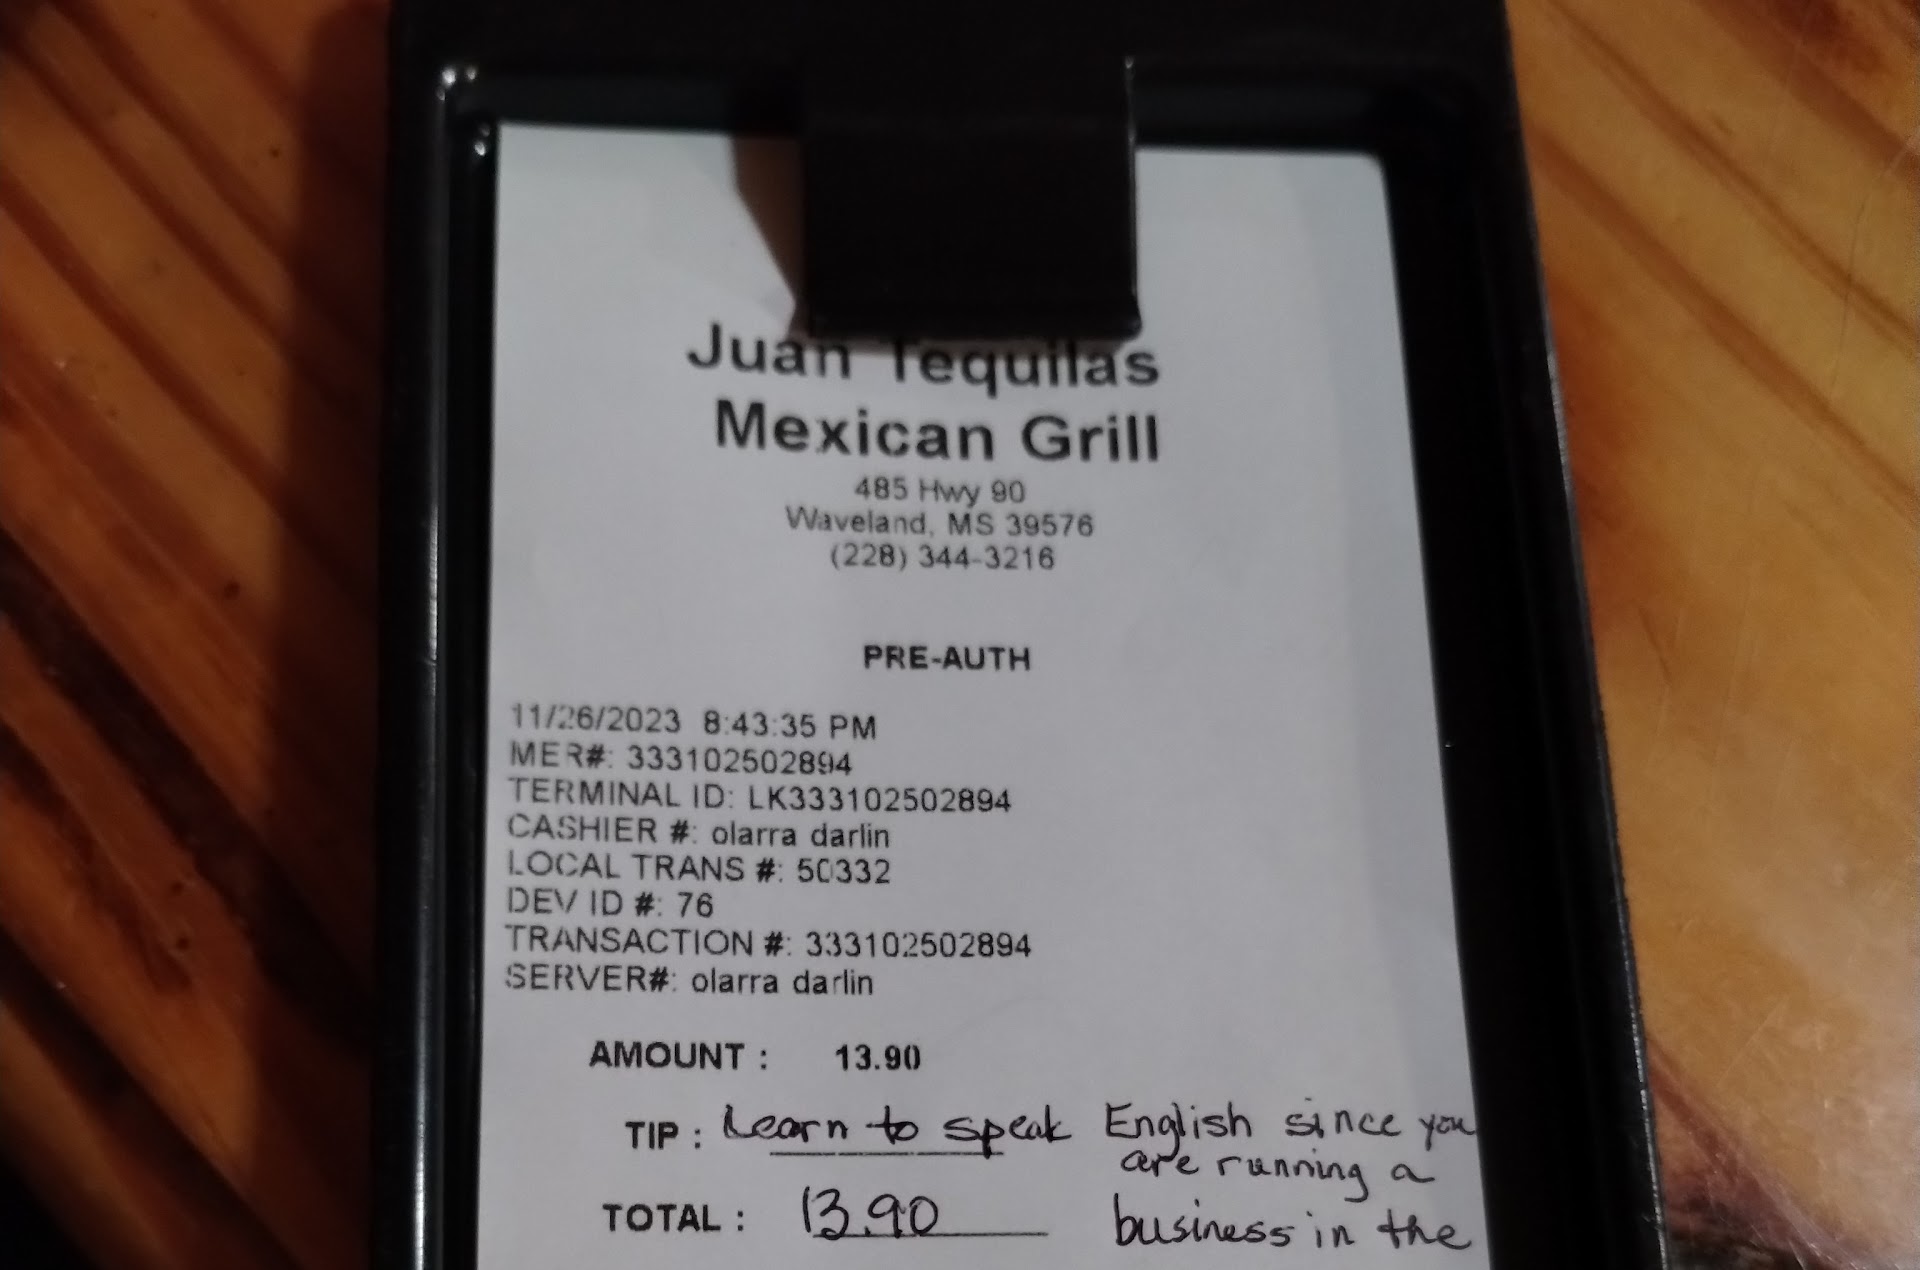 Juan Tequilas
Mexican Grill
485 Hwy 90
Waveland, MS 39576
(228) 344-3216
PRE-AUTH
11/26/2023 8:43:35 PM
MER#: 333102502894
TERMINAL ID: LK333102502894
CASHIER #: olarra darlin
LOCAL TRANS #: 50332
DEV ID #: 76
TRANSACTION #: 333102502894
SERVER#: olarra darlin
AMOUNT : 13.90
TIP : Learn to speak English since you
are running a
TOTAL : 13.90 business in the